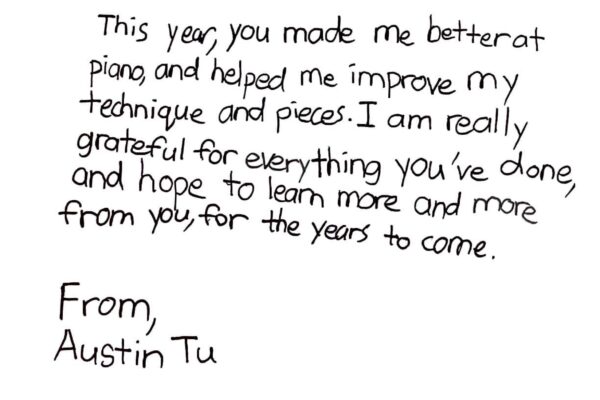 This year, you made me better at
piano, and helped me improve my
technique and pieces. I am really
grateful for everything you've done,
and hope to learn more and more
from you, for the years to come.
From,
Austin Tu